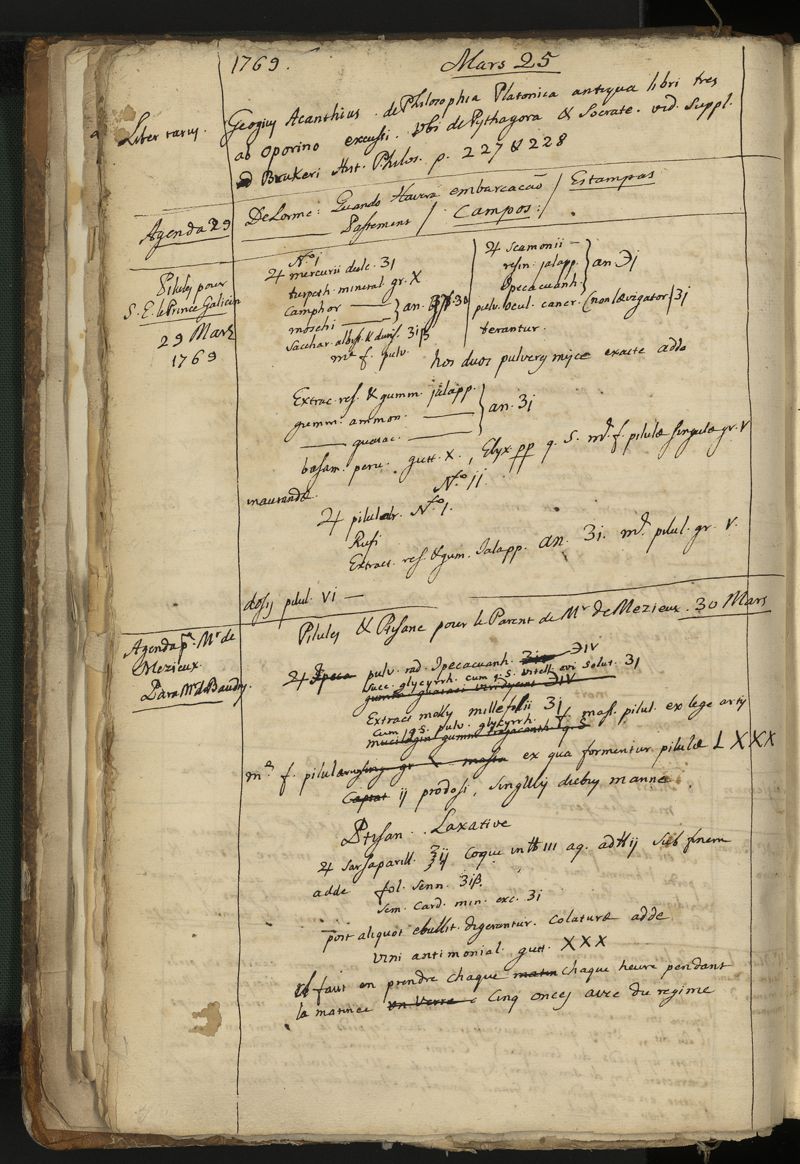 1769. Mars 25
Liber rarus. Georgius Acanthius. de Philosophia Platonica antiqua libri tres
ab Oporino excussi. Ubi de Pythagora & Socrate. vid. Suppl.
ad Brukeri Hist. Philos. p. 227 & 228
Agenda 29
DeLorme: Quando Havera embarcacaõ / Estampas
Passement / Campos:/
Pilules pour
S. E. le Prince Galicin
29 Mars
1769
Nº 1
♃ mercurii dulc. ʒi
turpeth. mineral gr. X
camphor ——
moschi —— } an.
Sacchar. albiss. & duriss. ʒiß
mª f. pulv.
♃ Scamonii —
resin. jalapp. } an. ℈j
Ipecacuanh
pulv. ocul. cancr. (non lævigator) ʒi
terantur.
hos duos pulveres misce exacte adde
Extrac. res. & gumm. jalapp.
gumm. ammon. —— } an. ʒi
—— guaiac. ——
balsam. peru. gutt. X., Elyx. pp q. S. mª f. pilulæ singulæ gr. V
inaurandæ.
Nº II
♃ pilular. Nº 1.
Rufi
Extract. res. & gum. Jalapp. an. ʒi. mª. pilul. gr. V.
dosis pilul. VI —
Agenda pª. Mr de
Mezieux.
Para Mr de Baudry.
Pilules & Ptisane pour le Parent de Mr de Mezieux. 30 Mars
♃ Ipeca pulv. rad. Ipecacuanh. ℈IV
succ. glycyrrh. cum q. S. vitell. ovi solut. ʒi
gummi guaiaci ℈IV
Extract. millefolii ʒi
cum q. S. pulv. glycyrrh. f. mass. pilul. ex lege artis
mucilagin gummi Tragacanth q. S
mª f. pilularum sing gr massa ex qua formentur pilulæ LXXX
Capiat ij pro dosi, singulis diebus manne
Ptisan. Laxative
♃ Sarsaparill. ℥ij coque in ℔ III aq. ad ℔ ij sub finem
adde fol. Senn. ʒiß.
Sem. Card. min. exc. ʒi
post aliquot ebullit. digerantur. Colaturæ adde
vini antimonial. gutt. XXX
Il faut en prendre chaque matin chaque heure pendant
la matinee un verre cinq onces avec du regime